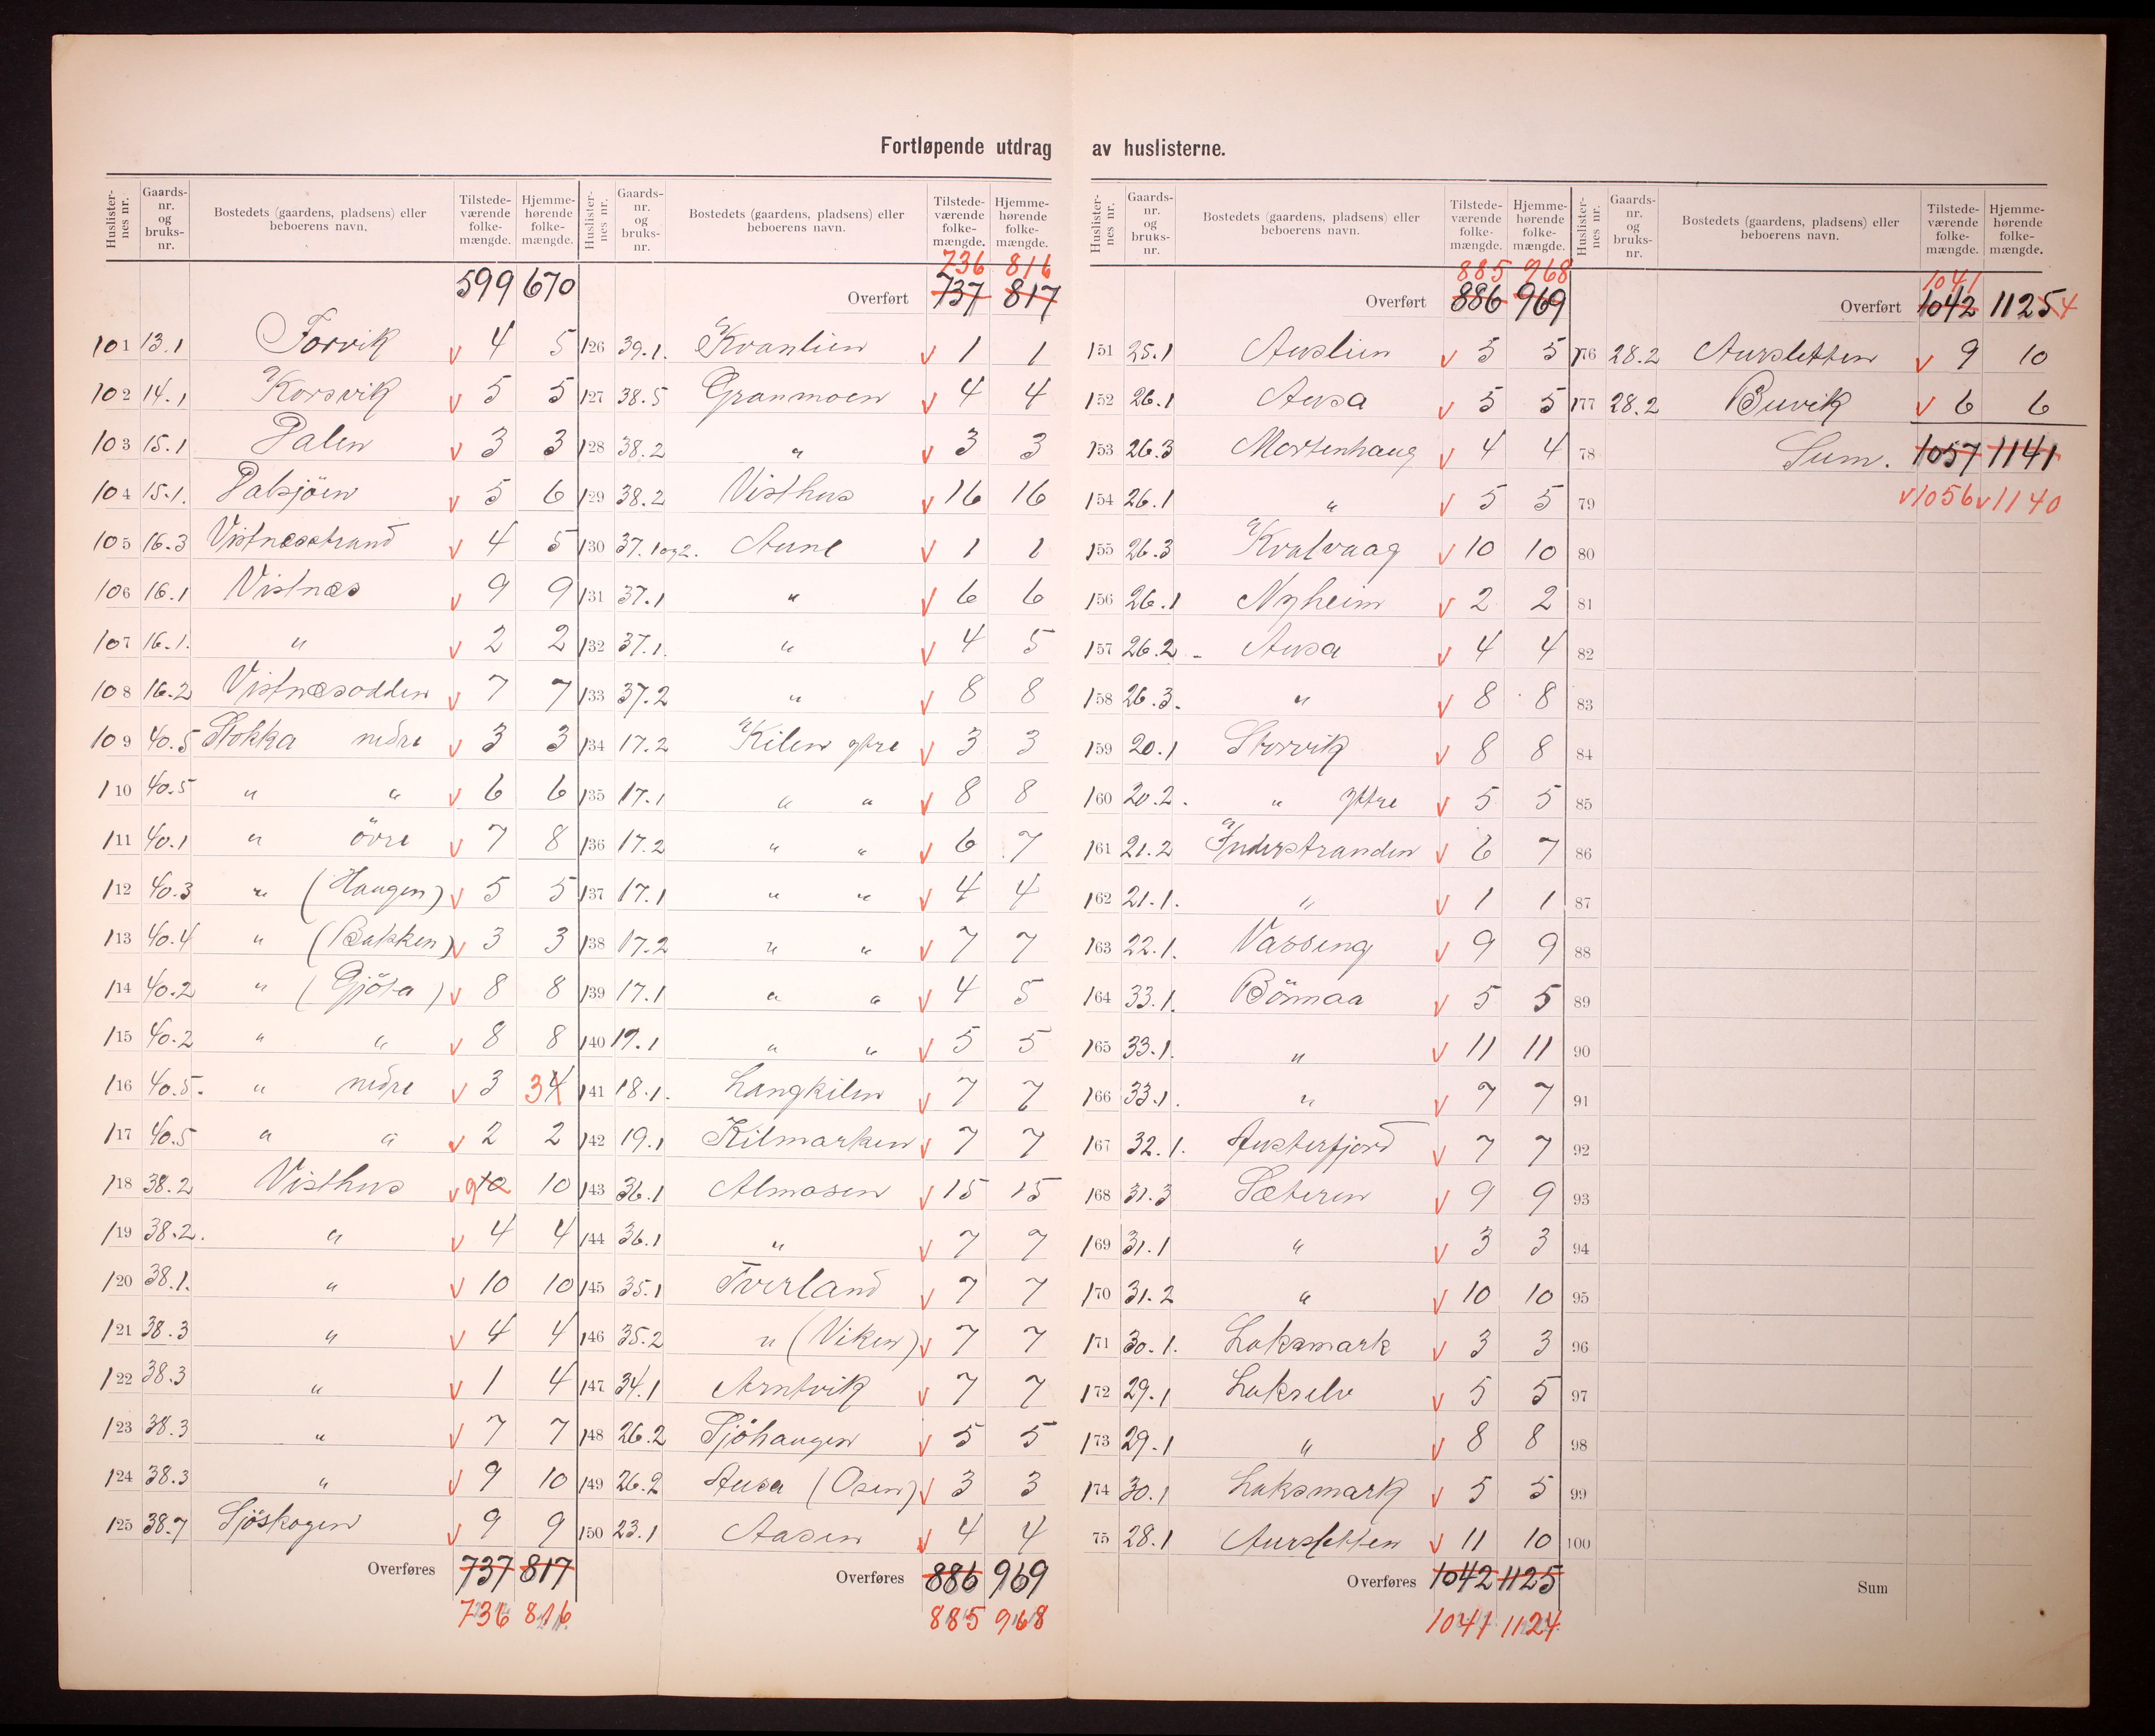 Fortløpende utdrag av huslisterne.
Huslister-nes nr. Gaards-nr. og bruks-nr. Bostedets (gaardens, pladsens) eller beboerens navn. Tilstede-værende folke-mængde. Hjemme-hørende folke-mængde.
599 670
101 13.1 Forvik v 4 5
102 14.1 Korsvik v 5 5
103 15.1 Dalen v 3 3
104 15.1. Dalsjöen v 5 6
105 16.3 Vistnesstrand v 4 5
106 16.1 Vistnes v 9 9
107 16.1. " v 2 2
108 16.2 Vistnesodden v 7 7
109 40.5 Stokka nedre v 3 3
110 40.5 " " v 6 6
111 40.1 " övre v 7 8
112 40.3 " (Haugen) v 5 5
113 40.4 " (Bakken) v 3 3
114 40.2 " (Gjöta) v 8 8
115 40.2 " " v 8 8
116 40.5. " nedre v 3 3 4
117 40.5 " " v 2 2
118 38.2 Visthus v 9 10 10
119 38.2. " v 4 4
120 38.1. " v 10 10
121 38.3 " v 4 4
122 38.3 " v 1 4
123 38.3 " v 7 7
124 38.3 " v 9 10
125 38.7 Sjöskogen v 9 9
Overføres 737 817
736 816
Huslister-nes nr. Gaards-nr. og bruks-nr. Bostedets (gaardens, pladsens) eller beboerens navn. Tilstede-værende folke-mængde. Hjemme-hørende folke-mængde.
736 816
Overført 737 817
126 39.1. Kvanlien v 1 1
127 38.5 Granmoen v 4 4
128 38.2 " v 3 3
129 38.2 Visthus v 16 16
130 37.1og2. Aune v 1 1
131 37.1 " v 6 6
132 37.1. " v 4 5
133 37.2 " v 8 8
134 17.2 Kilen ytre v 3 3
135 17.1 " " v 8 8
136 17.2 " " v 6 7
137 17.1 " " v 4 4
138 17.2 " " v 7 7
139 17.1 " " v 4 5
140 17.1 " " v 5 5
141 18.1. Langkilen v 7 7
142 19.1 Kilmarken v 7 7
143 36.1 Almosen v 15 15
144 36.1 " v 7 7
145 35.1 Tverland v 7 7
146 35.2 " (Viken) v 7 7
147 34.1 Arntvik v 7 7
148 26.2 Sjöhaugen v 5 5
149 26.2 Ausa (Osen) v 3 3
150 23.1 Aasen v 4 4
Overføres 886 969
885 968
Huslister-nes nr. Gaards-nr. og bruks-nr. Bostedets (gaardens, pladsens) eller beboerens navn. Tilstede-værende folke-mængde. Hjemme-hørende folke-mængde.
885 968
Overført 886 969
151 25.1 Auslien v 5 5
152 26.1 Ausa v 5 5
153 26.3 Mortenhaug v 4 4
154 26.1 " v 5 5
155 26.3 Kvalvaag v 10 10
156 26.1 Nyheim v 2 2
157 26.2 - Ausa v 4 4
158 26.3. " v 8 8
159 20.1 Storvik v 8 8
160 20.2. " Yttre v 5 5
161 21.2 Inderstranden v 6 7
162 21.1. " v 1 1
163 22.1. Vasseng v 9 9
164 33.1. Bönnaa v 5 5
165 33.1. " v 11 11
166 33.1. " v 7 7
167 32.1. Austerfjord v 7 7
168 31.3 Sæteren v 9 9
169 31.1 " v 3 3
170 31.2 " v 10 10
171 30.1. Laksmark v 3 3
172 29.1 Lakselv v 5 5
173 29.1 " v 8 8
174 30.1 Laksmark v 5 5
75 28.1 Aursletten v 11 10
Overføres 1042 1125
1041 1124
Huslister-nes nr. Gaards-nr. og bruks-nr. Bostedets (gaardens, pladsens) eller beboerens navn. Tilstede-værende folke-mængde. Hjemme-hørende folke-mængde.
1041
Overført 1042 1125 4
176 28.2 Aursletten v 9 10
177 28.2 Buvik v 6 6
78 Sum. 1057 1141
79 v 1056 v 1140
80
81
82
83
84
85
86
87
88
89
90
91
92
93
94
95
96
97
98
99
100
Sum